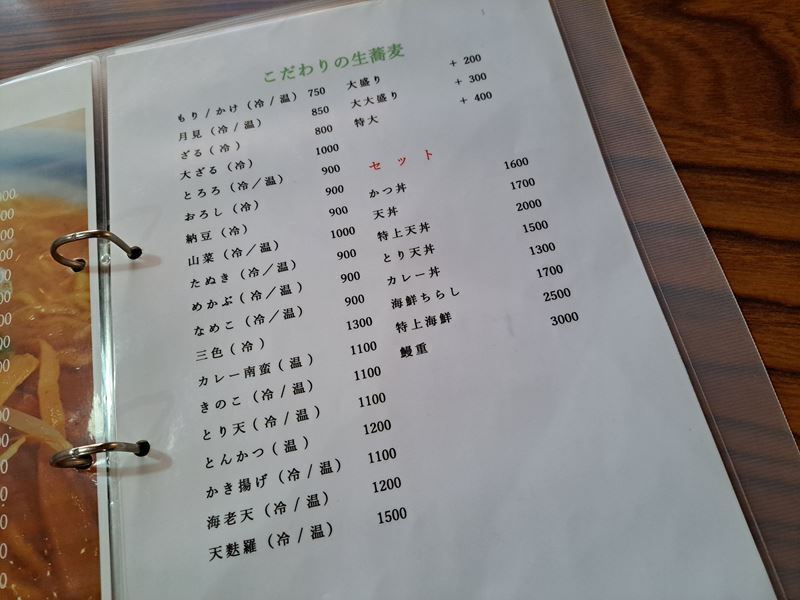 1
こだわりの生蕎麦
もり/かけ（冷/温） 750
月見（冷/温） 850
ざる（冷） 800
大ざる（冷） 1000
とろろ（冷/温） 900
おろし（冷） 900
納豆（冷） 900
山菜（冷/温） 1000
たぬき（冷/温） 900
めかぶ（冷/温） 900
なめこ（冷/温） 900
三色（冷） 1300
カレー南蛮（温） 1100
きのこ（冷/温） 1100
とり天（冷/温） 1100
とんかつ（温） 1200
かき揚げ（冷/温） 1100
海老天（冷/温） 1200
天麩羅（冷/温） 1500
大盛り + 200
大大盛り + 300
特大 + 400
セット
かつ丼 1600
天丼 1700
特上天丼 2000
とり天丼 1500
カレー丼 1300
海鮮ちらし 1700
特上海鮮 2500
鰻重 3000